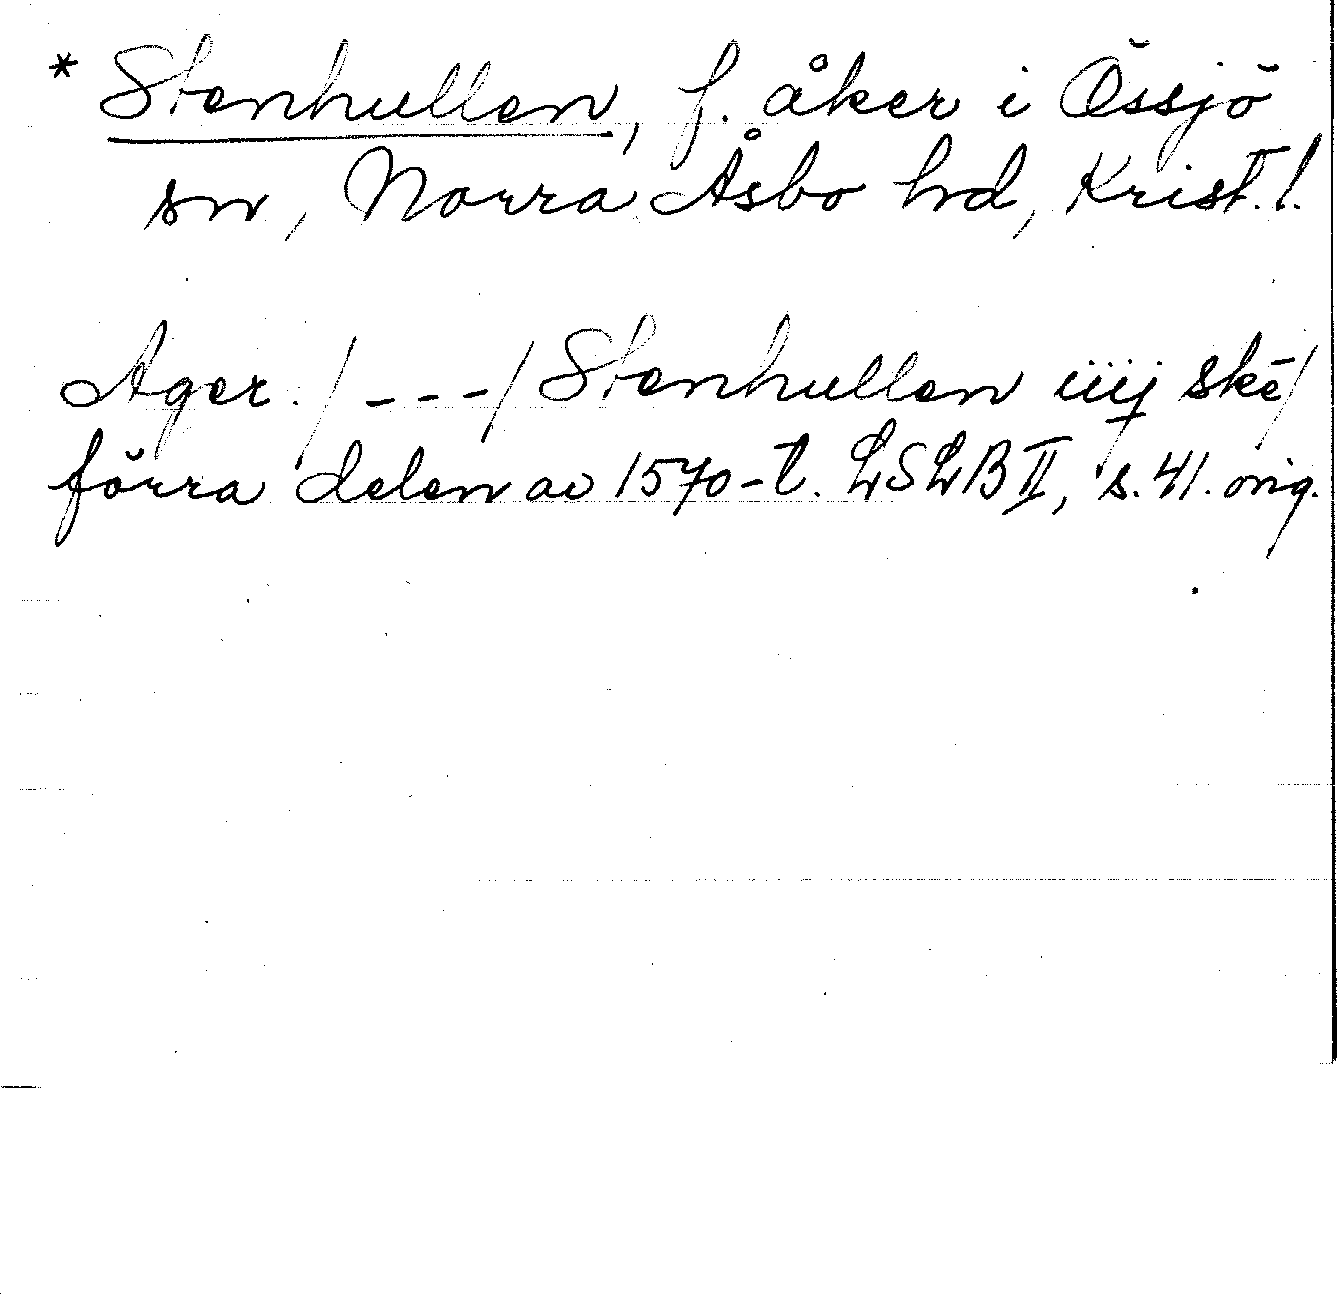 * Stenhullen, f. åker i Össjö
sn, Norra Åsbo hd, Krist. l.
Ager. /---/ Stenhullen iiij skē/
förra delen av 1570-t. LSLB II, s. 41. orig.